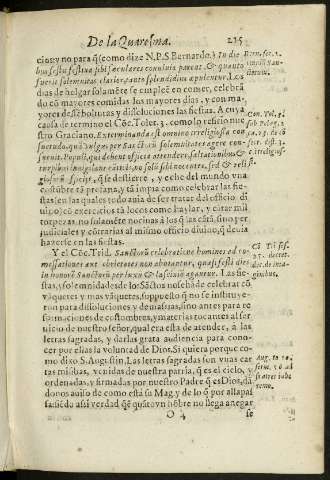 De la Quaresma.
215
cios: y no para q̃ (como dize N.P.S Bernardo.) In die
bus festis festiua sibi sæculares conuiuia parent, & quanto
fuerit solemnitas clarior, tanto splendidius epulentur. Los
dias de holgar solamẽte se emplẽe en comer, celebrã
do cõ mayores comidas los mayores dias, y con ma-
yores deshõbolturas y dissoluciones las fiestas. A cuya
causa determino el Cõc. Tolet. 3. como lo refirio nues
tro Graciano. Exterminanda est omnino irreligiosa con
suetudo, quã vulgus per Sanctorũ solemnitates agere con-
sueuit. Populi, qui debent officia attendere, saltationibus &
turpibus inuigilant cãticis, no solũ sibi nocentes, sed & religi
osorũ officijs
q̃ se destierre, y eche del mundo vna
costũbre tã profana, y tã impia como celebrar las fie-
stas en las quales todo auia de ser tratar del officio di
uino, cõ exercicios tã locos como baylar, y cãtar mil
torpezas, no solamẽte nociuas à los q̃ las cãtã, sino per
judiciales y cõtrarias al mismo officio diuino, q̃ deuia
hazerse en las fiestas.
Y el Cõc. Trid. Sanctorũ celebratione homines ad co-
messationes aut ebrietates non abutantur, quasi festi dies
in honorẽ Sanctorũ per luxũ & lasciuiã agantur. Las fie-
stas, y solemnidades de los Sãctos no se hã de celebrar cõ
vãquetes y mas vãquetes, supuesto q̃ no se instituye-
ron para dissoluciones y demasias, sino antes para re
formaciones de costumbres, y materias tocantes al ser
uicio de nuestro señor, qual era esta de atender, à las
letras sagradas, y darlas grata audiencia para cono-
cer por ellas la voluntad de Dios. Si quiera porque co-
mo dixo S. Augustin, Las letras sagradas son vnas car
tas missibas, venidas de nuestra patria, q̃ es el cielo, y
ordenadas, y firmadas por nuestro Padre q̃ es Dios, dã
donos auiso de como està su Mag. y de lo q̃ por alla pas
sa: siẽdo assi verdad q̃ quãto vn hõbre no llega a negar
O 4
se